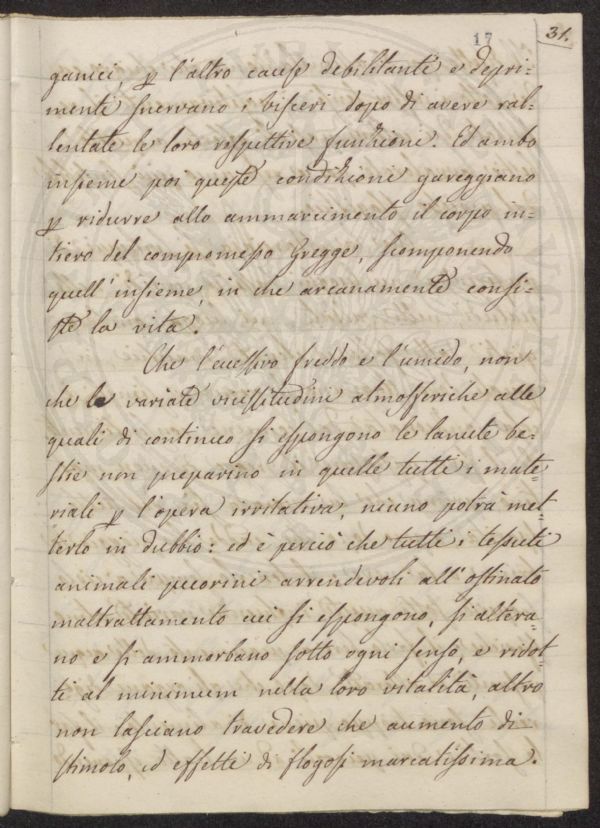 17
31.
ganici, p l'altro cause debilitanti e depri=
menti snervano i visceri dopo di avere ral=
lentate le loro rispettive funzioni. Ed ambo
insieme poi queste condizioni gareggiano
p ridurre allo ammarcimento il corpo in=
tiero del compromesso Gregge, scomponendo
quell'insieme, in che arcanamente consi=
ste la vita.
Che l'eccessivo freddo e l'umido, non
che le variate vicissitudini atmosferiche alle
quali di continuo si espongono le lanute be=
stie non preparino in quelle tutti i mate=
riali p l'opera irritativa, niuno potrà met=
terlo in dubbio: ed è perciò che tutti i tessuti
animali pecorini arrendevoli all'ostinato
maltrattamento cui si espongono, si altera=
no e si ammorbano sotto ogni senso, e ridot=
ti al minimum nella loro vitalità, altro
non lasciano travedere che aumento di
stimolo, ed effetti di flogosi marcatissima.